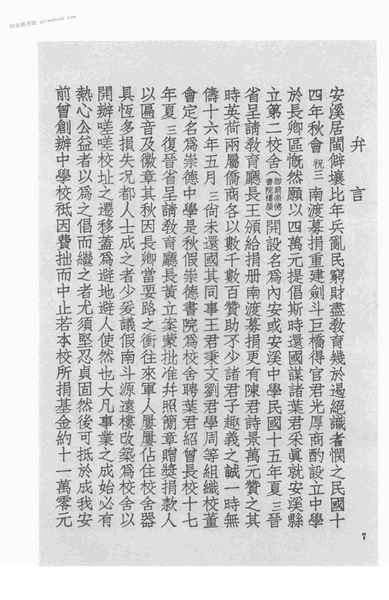 弁言
安溪居閩僻壤比年兵亂民窮財盡教育幾於遏絕識者憫之民國十
四年秋會祝三南渡募捐重建劍斗巨橋得官君光厚商酌設立中學
於長卿區慨然願以四萬元提倡斯時還國謀諸葉君采眞就安溪縣
立第二校舍開設名爲內安或安溪中學民國十五年夏三晉
省呈請教育廳長王頒給捐册南渡募捐更有陳君詩景萬元贊之其
時英荷兩屬僑商各以數千數百贊助不少諸君子趨義之誠一時無
儔十六年五月三尙未還國其同事王君秉文劉君學周等組織校董
會定名爲崇德中學是秋假崇德書院爲校舍聘葉君紹曾長校十七
年夏三復晉省呈請教育廳長黃立案蒙批准幷照簡章贈獎捐款人
以匾音及徽章其秋因長卿當要路之衝往來軍人屢屢佔住校舍器
具恆多損失况都人士成之者少爰議假南斗源遠樓改築爲校舍以
開辦嗟嗟校址之遷移蓋爲避地避人使然也大凡事業之成始必有
熱心公益者以爲之倡而繼之者尤須堅忍貞固然後可抵於成我安
前曾創辦中學校祇因費拙而中止若本校所捐基金約十一萬零元
7